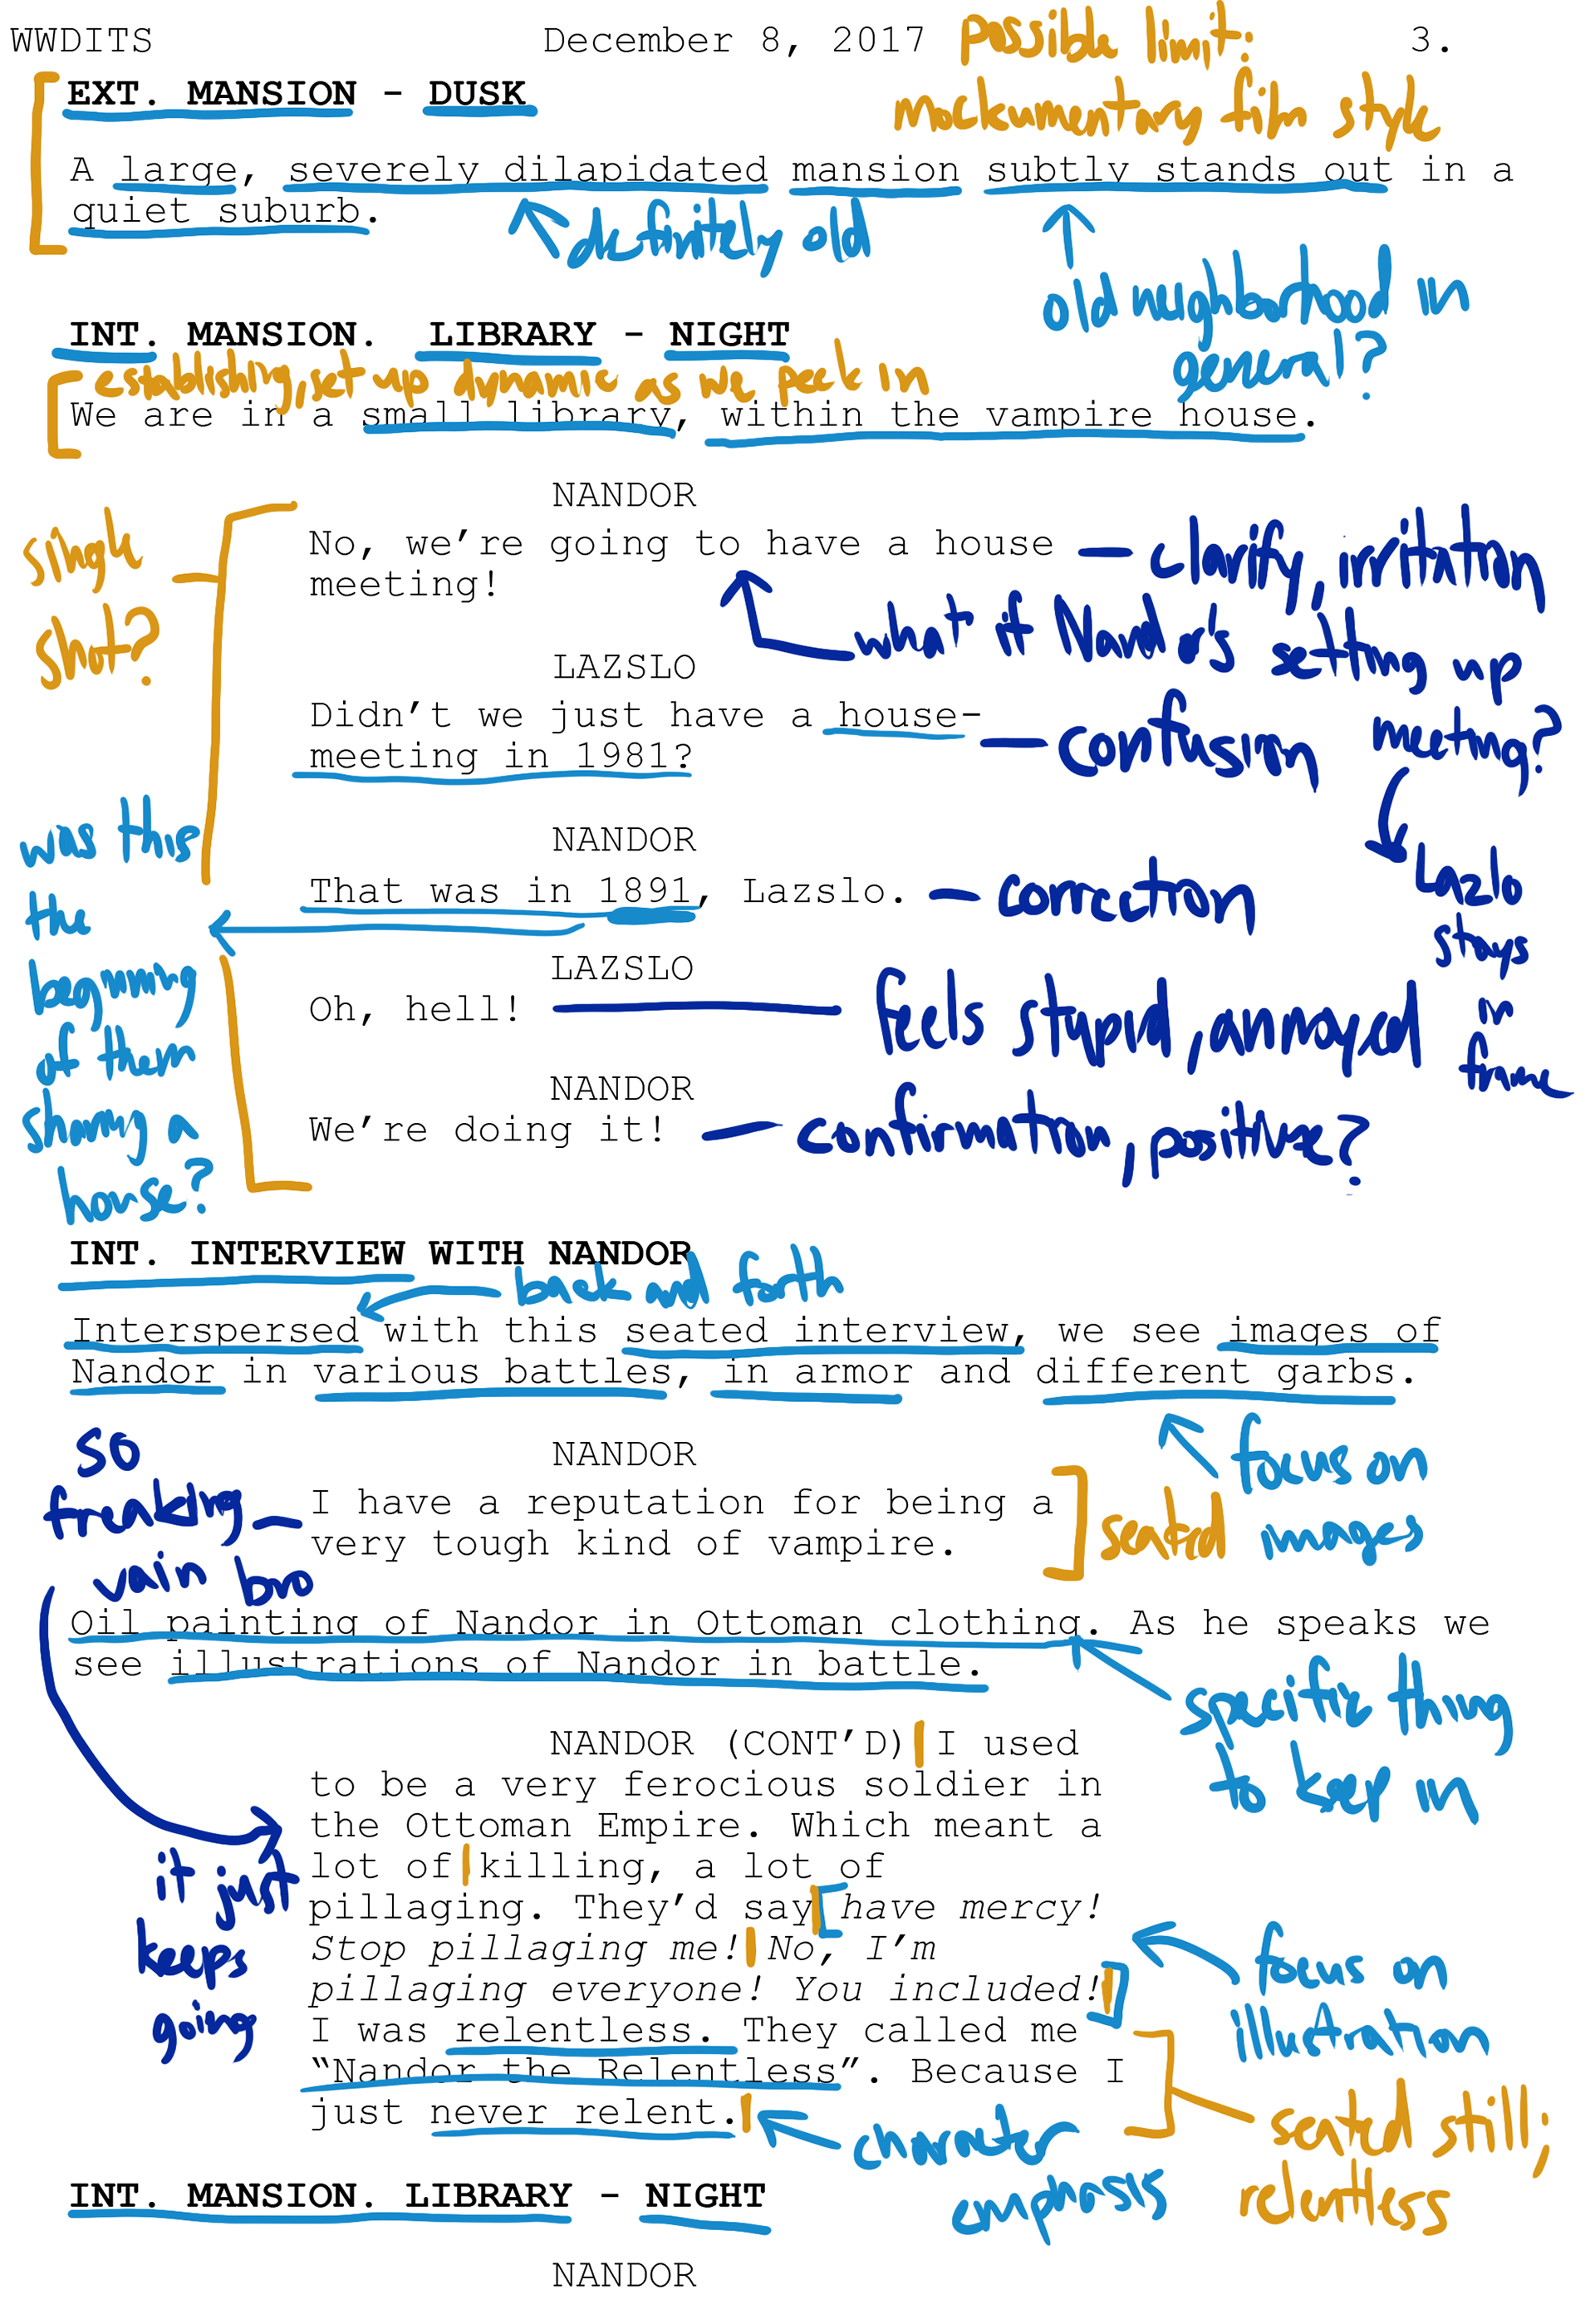 WWDITS December 8, 2017 3.
possible limit:
mockumentary film style
EXT. MANSION - DUSK
A large, severely dilapidated mansion subtly stands out in a
quiet suburb.
definitely old
old neighborhood in
general?
INT. MANSION. LIBRARY - NIGHT
establishing, set up dynamic as we peek in
We are in a small library, within the vampire house.
single
shot?
NANDOR
No, we’re going to have a house
meeting!
clarify, irritation
what if Nandor's setting up
meeting?
Lazlo
stays
in
frame
LAZSLO
Didn’t we just have a house-
meeting in 1981?
confusion
NANDOR
That was in 1891, Lazslo.
correction
was this
the
beginning
of them
sharing a
house?
LAZSLO
Oh, hell!
feels stupid, annoyed
NANDOR
We’re doing it!
confirmation, positive?
INT. INTERVIEW WITH NANDOR
back and forth
Interspersed with this seated interview, we see images of
Nandor in various battles, in armor and different garbs.
focus on
images
NANDOR
I have a reputation for being a
very tough kind of vampire.
seated
so
freaking
vain bro
Oil painting of Nandor in Ottoman clothing. As he speaks we
see illustrations of Nandor in battle.
specific thing
to keep in
NANDOR (CONT’D) I used
to be a very ferocious soldier in
the Ottoman Empire. Which meant a
lot of killing, a lot of
pillaging. They’d say have mercy!
Stop pillaging me! No, I’m
pillaging everyone! You included!
I was relentless. They called me
“Nandor the Relentless”. Because I
just never relent.
it just
keeps
going
focus on
illustration
seated still;
relentless
character
emphasis
INT. MANSION. LIBRARY - NIGHT
NANDOR